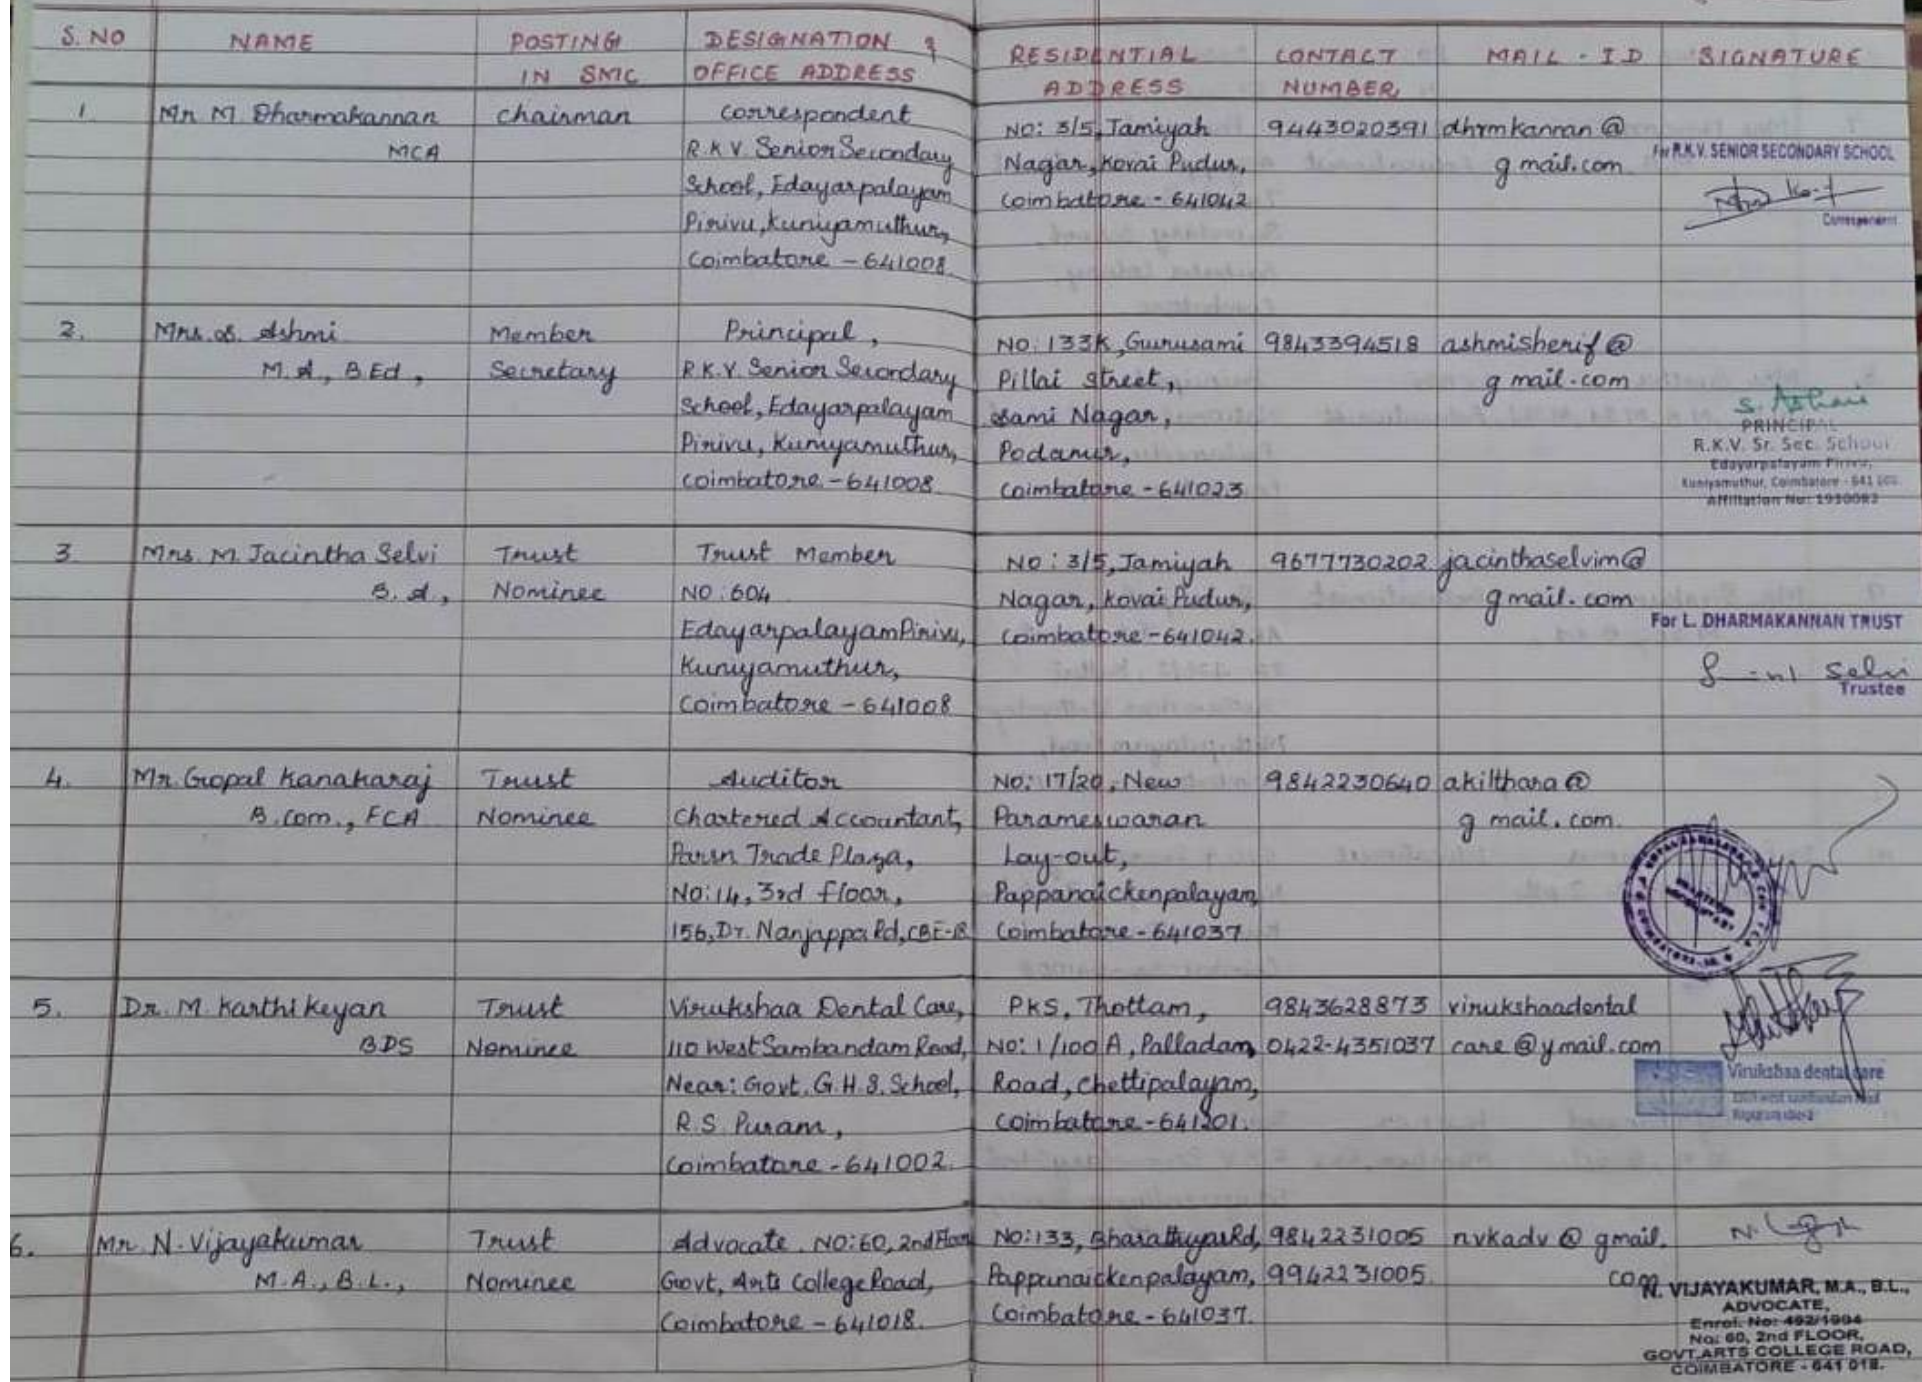 S. NO
NAME
POSTING
IN SMC
DESIGNATION &
OFFICE ADDRESS
RESIDENTIAL
ADDRESS
CONTACT
NUMBER
MAIL - ID
SIGNATURE
1
Mr. M. Dharmakannan
MCA
Chairman
Correspondent
R.K.V. Senior Secondary
School, Edayarpalayam
Pirivu, Kuniyamuthur,
Coimbatore - 641008
NO: 3/5, Jamiyah
Nagar, Kovai Pudur,
Coimbatore - 641042
9443020391
dhrmkannan@
gmail.com
For R.K.V. SENIOR SECONDARY SCHOOL
Correspondent
2.
Mrs. S. Ashmi
M.A., B.Ed.,
Member
Secretary
Principal,
R.K.V. Senior Secondary
School, Edayarpalayam
Pirivu, Kuniyamuthur,
Coimbatore - 641008
NO: 133K, Gurusami
Pillai Street,
Sami Nagar,
Podanur,
Coimbatore - 641023
9843394518
ashmisherif@
gmail.com
S. Ashmi
PRINCIPAL
R.K.V. Sr. Sec. School
Edayarpalayam Pirivu,
Kuniyamuthur, Coimbatore - 641 008
Affiliation No: 1930082
3.
Mrs. M. Jacintha Selvi
B.A.,
Trust
Nominee
Trust Member
NO: 604
Edayarpalayam Pirivu,
Kuniyamuthur,
Coimbatore - 641008
NO: 3/5, Jamiyah
Nagar, Kovai Pudur,
Coimbatore - 641042.
9677730202
jacinthaselvim@
gmail.com
For L. DHARMAKANNAN TRUST
Selvi
Trustee
4.
Mr. Gopal Kanakaraj
B.Com., FCA
Trust
Nominee
Auditor
Chartered Accountant,
Parsn Trade Plaza,
NO: 14, 3rd floor,
156, Dr. Nanjappa Rd, CBE-18
NO: 17/20, New
Parameswaran
Lay-out,
Pappanaickenpalayam
Coimbatore - 641037
9842230640
akilthara@
gmail.com.
5.
Dr. M. Karthikeyan
BDS
Trust
Nominee
Virukshaa Dental Care,
110 West Sambandam Road,
Near: Govt. G.H.S. School,
R.S. Puram,
Coimbatore - 641002.
PKS, Thottam,
NO: 1/100 A, Palladam
Road, Chettipalayam,
Coimbatore - 641201.
9843628873
0422-4351037
virukshaadental
care@ymail.com
Virukshaa dental care
6.
Mr. N. Vijayakumar
M.A., B.L.,
Trust
Nominee
Advocate. NO: 60, 2nd Floor
Govt, Arts College Road,
Coimbatore - 641018.
NO: 133, Bharathiyar Rd,
Pappanaickenpalayam,
Coimbatore - 641037.
9842231005
9942231005
nvkadv@gmail.
com
N. VIJAYAKUMAR, M.A., B.L.,
ADVOCATE,
Enrol. No: 492/1994
No: 60, 2nd FLOOR,
GOVT.ARTS COLLEGE ROAD,
COIMBATORE - 641 018.